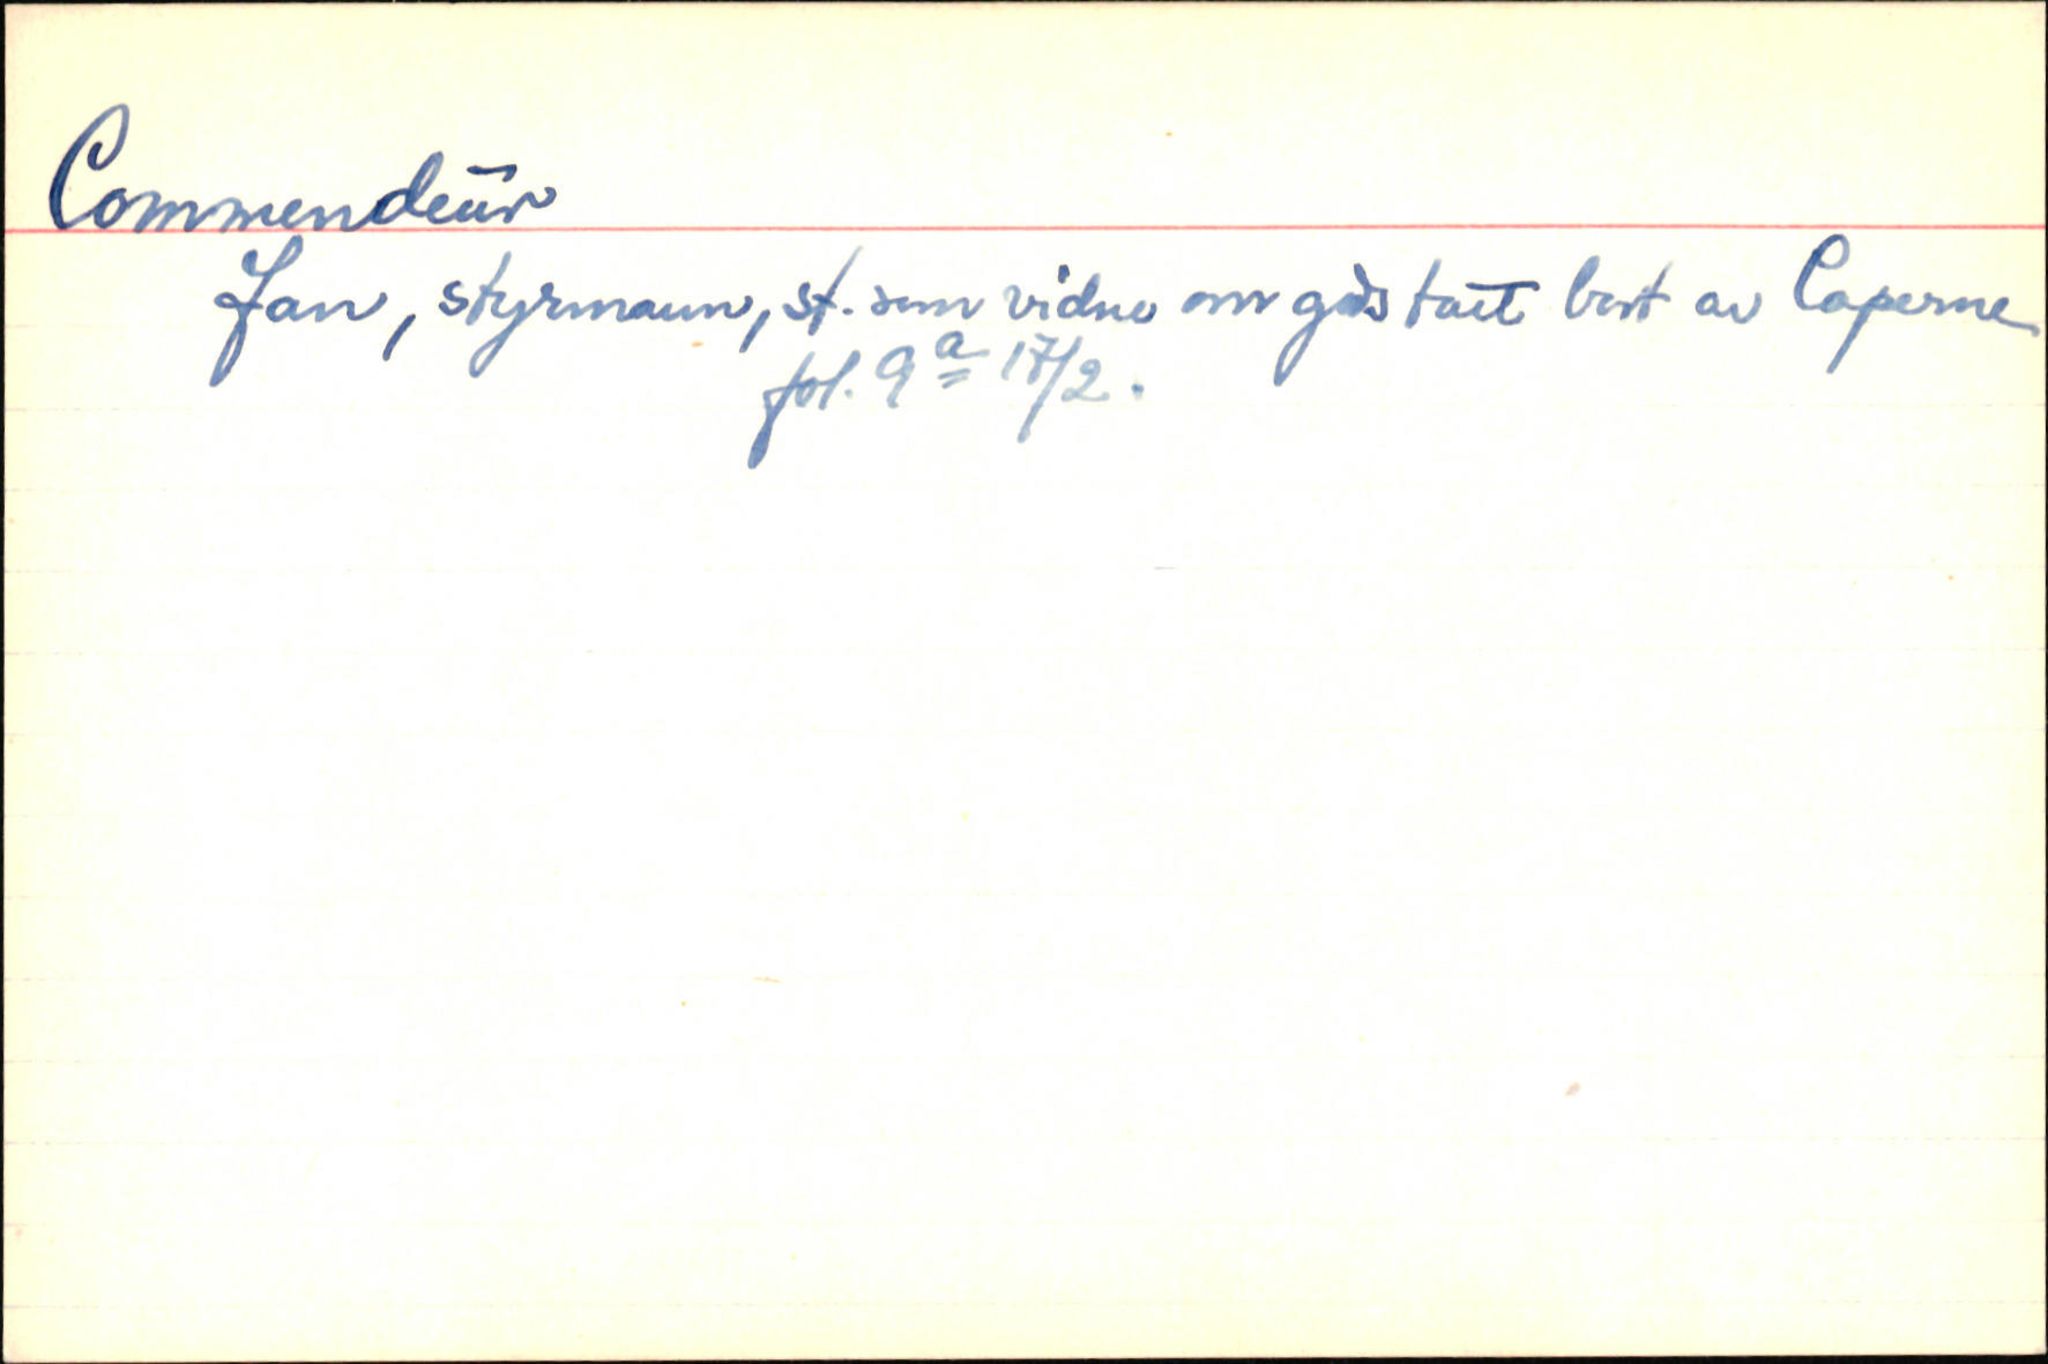 Commendeur
Jan, styrmann, st. som vidne om gods taet bort av Caperne
fol. 9a 17/2.